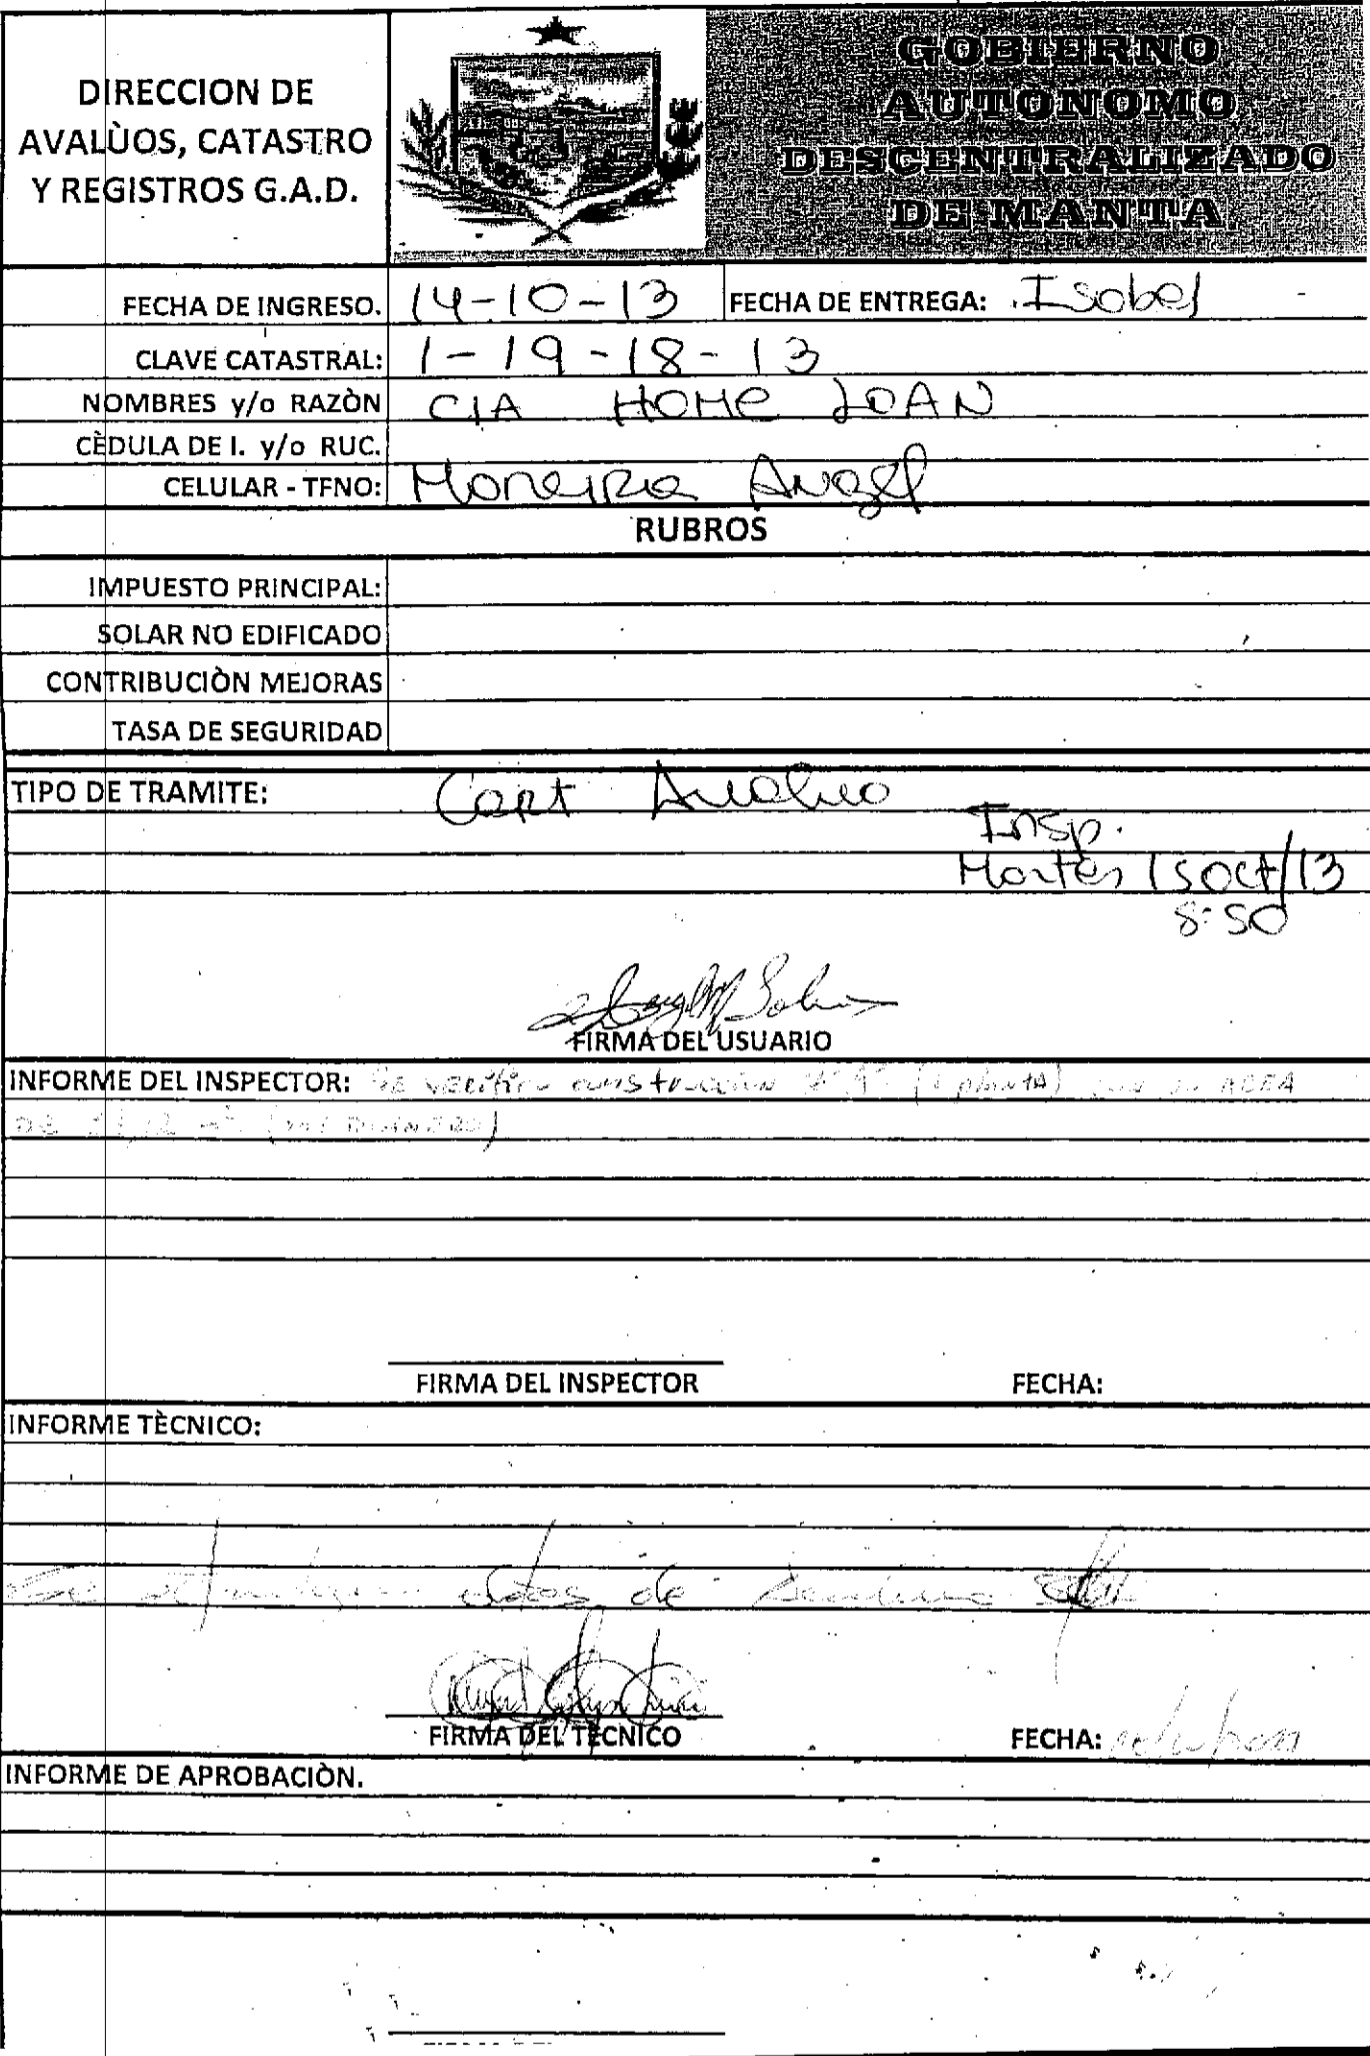 DIRECCION DE
AVALÙOS, CATASTRO
Y REGISTROS G.A.D.
GOBIERNO
AUTONOMO
DESCENTRALIZADO
DE MANTA
FECHA DE INGRESO. 14-10-13 FECHA DE ENTREGA: Isabel
CLAVE CATASTRAL: 1-19-18-13
NOMBRES y/o RAZÒN CIA HOME LOAN
CÈDULA DE I. y/o RUC.
CELULAR - TFNO: Moreira Angel
RUBROS
IMPUESTO PRINCIPAL:
SOLAR NO EDIFICADO
CONTRIBUCIÒN MEJORAS
TASA DE SEGURIDAD
TIPO DE TRAMITE: Cert Avaluo
Insp.
Martes 15 oct/13
8:50
FIRMA DEL USUARIO
INFORME DEL INSPECTOR: Se construcción (1 planta) AREA
DE
FIRMA DEL INSPECTOR FECHA:
INFORME TÈCNICO:
de
FIRMA DEL TECNICO FECHA:
INFORME DE APROBACIÒN.